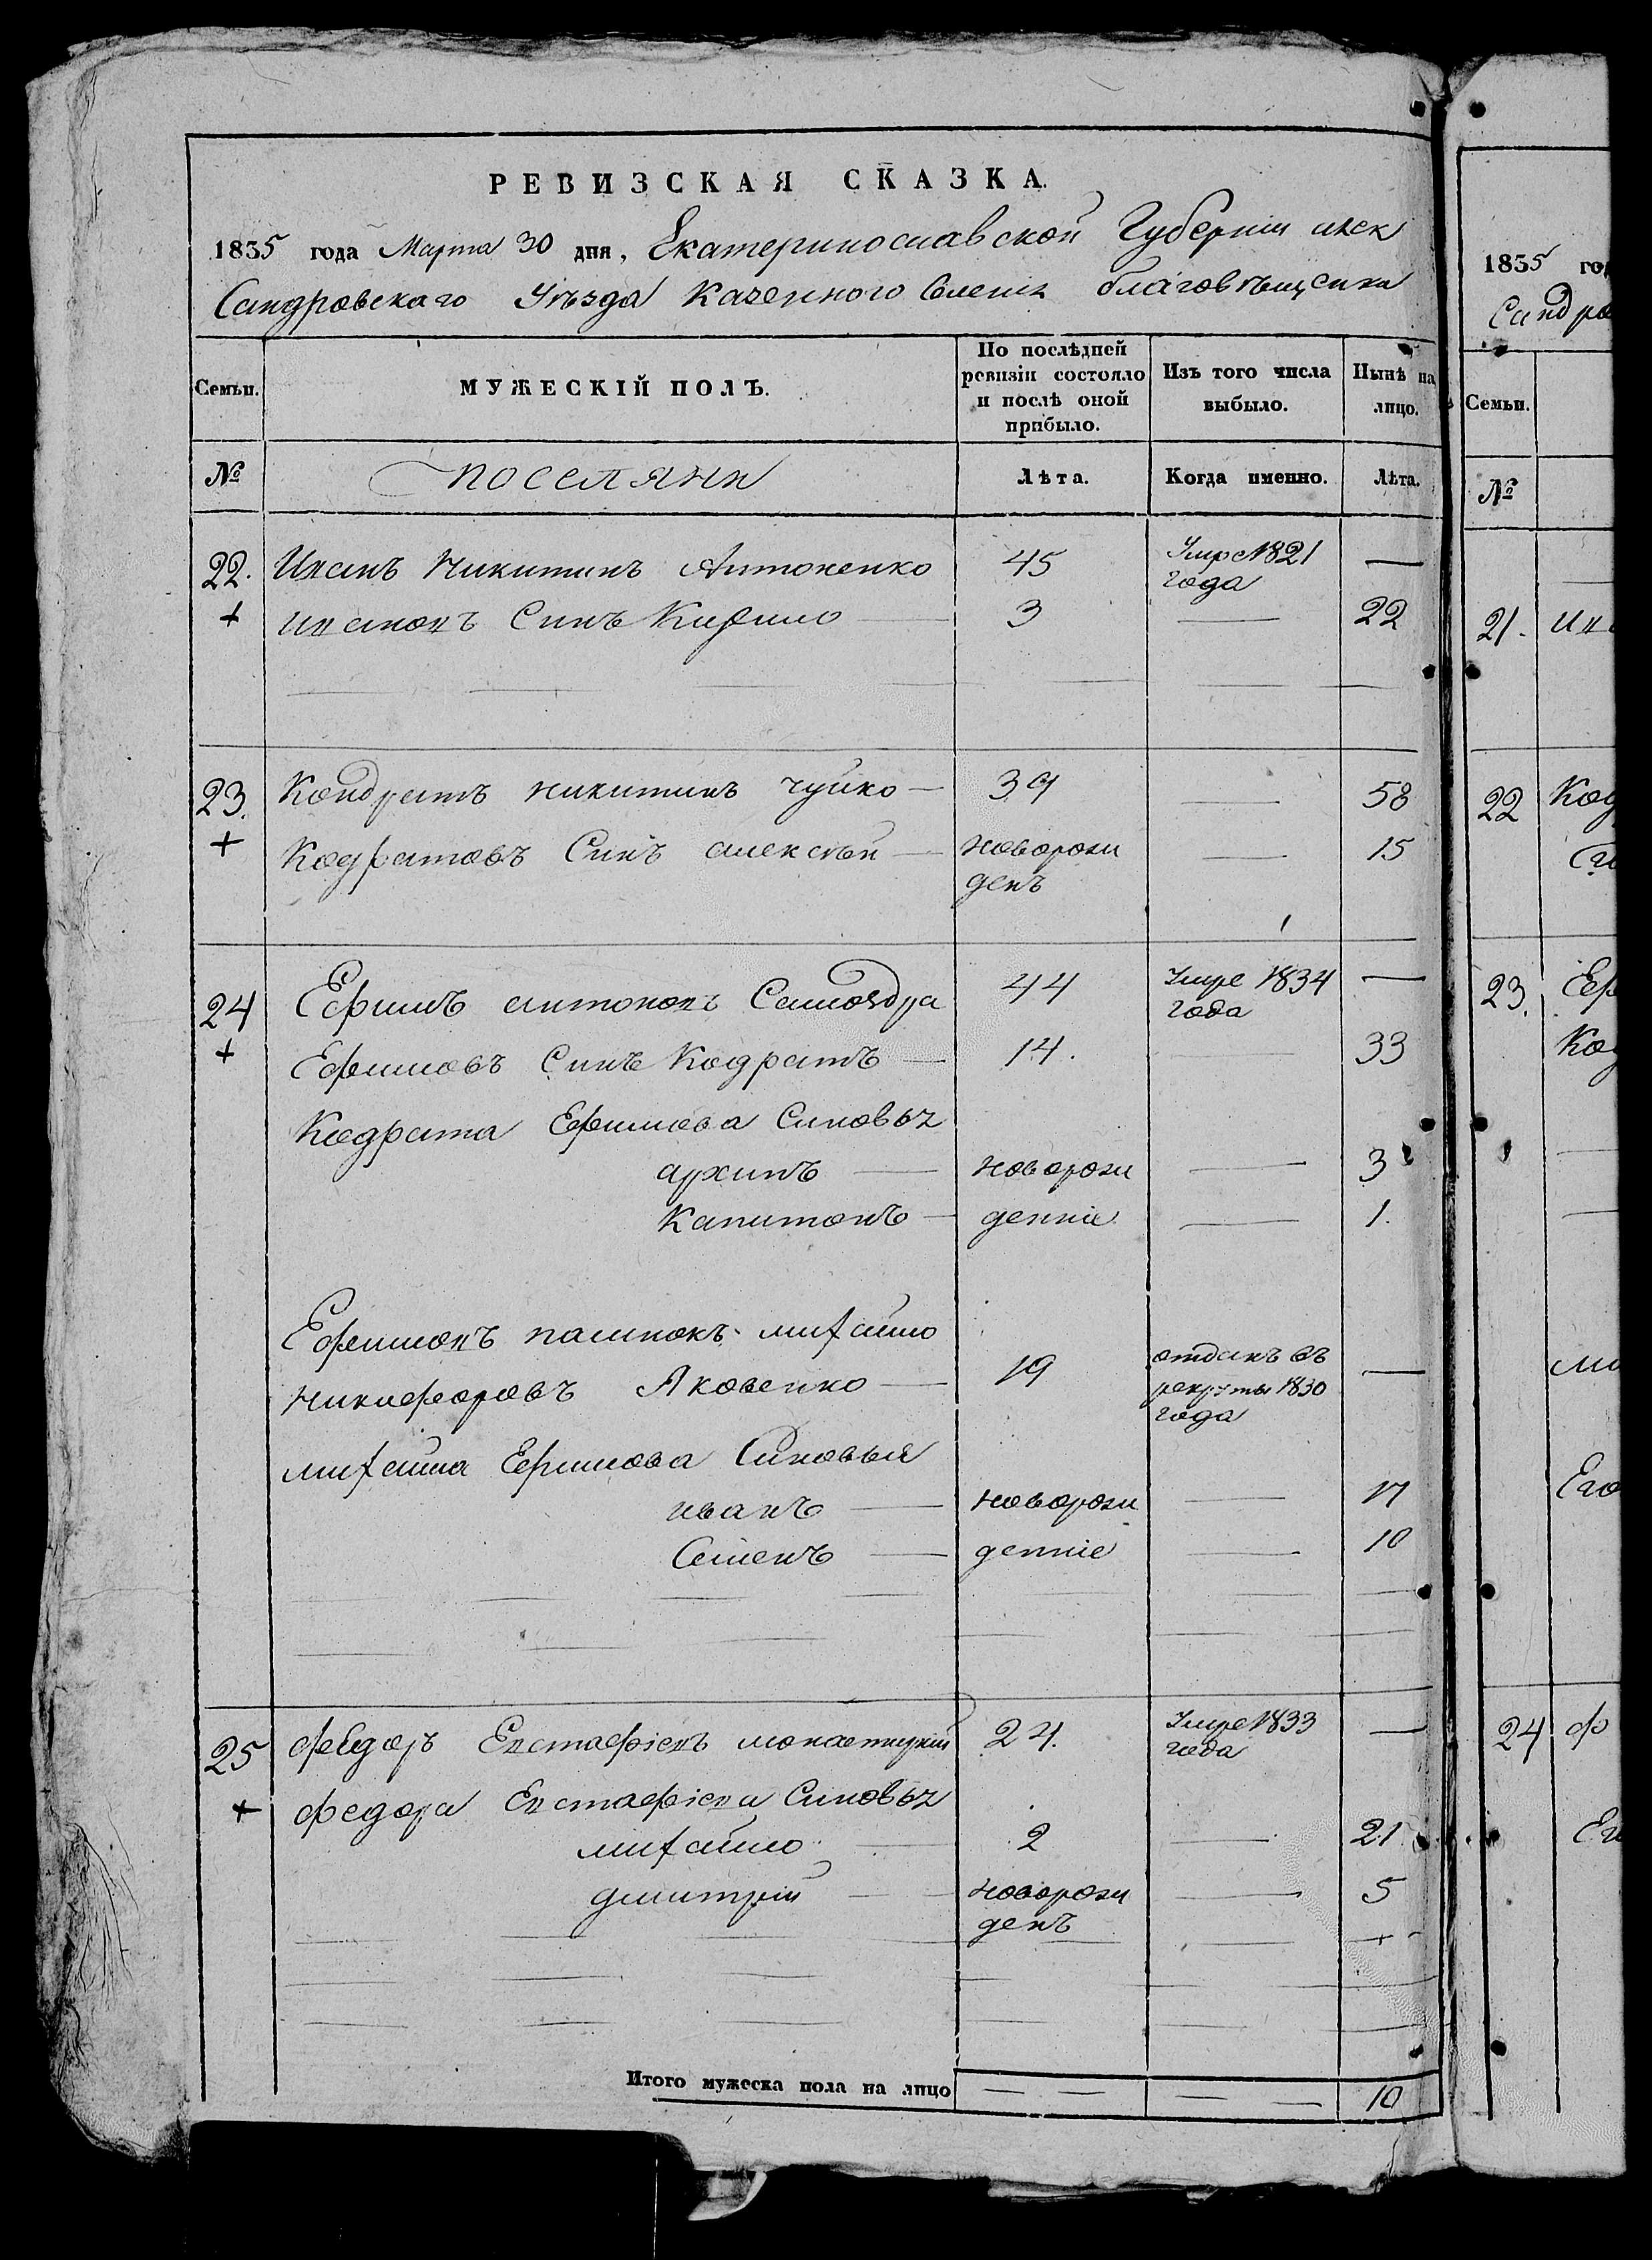 РЕВИЗСКАЯ СКАЗКА.
1835 года Марта 30 дня, Екатеринославской Губерніи алек
Сандровскаго Уѣзда Казенного Селенія благовѣщенска
Семьи. МУЖЕСКІЙ ПОЛЪ. По послѣдней ревизіи состояло и послѣ оной прибыло. Изъ того числа выбыло. Нынѣ на лицо.
№ поселянн Лѣта. Когда именно. Лѣта.
22. Иванъ Никитинъ Антоненко 45 Умре 1821 года —
+ ивановъ Синъ Кирило — 3 — 22
23. Кондратъ никитинъ чуйко — 39 — 58
+ Кодратовъ Синъ алексѣй — новорож денъ — 15
24 Ефимъ антоновъ Самоздра 44 Умре 1834 года —
+ Ефимовъ Синъ Кодратъ — 14. — 33
Кодрата Ефимова Синовья
архипъ — новорож — 3
Капитонъ — денніе — 1.
Ефимовъ пасинокъ михайло
никифоровъ Яковенко — 19 отданъ въ рекруты 1830 года —
михайла Ефимова Синовья
иванъ — новорож — 17
Семенъ — денніе — 10
25 федоръ Евстафіевъ 24. Умре 1833 года —
+ федора Евстафіева Синовья
михайло — 2 — 21
дмитрій — новорож денъ — 5
Итого мужеска пола на лицо — — — — 10
1835 го
Сандро
Семьи.
№
21. ив
22 Код
23. Еф
Код
ми
Его
24 ф